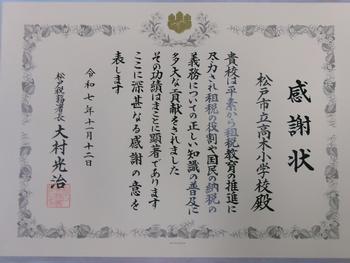 感謝状
松戸市立高木小学校殿
貴校は平素から租税教育の推進に
尽力され租税の役割や国民の納税の
義務についての正しい知識の普及に
多大な貢献をされました
その功績はまことに顕著であります
ここに深甚なる感謝の意を
表します
令和七年十一月十二日
松戸税務署長 大村光治